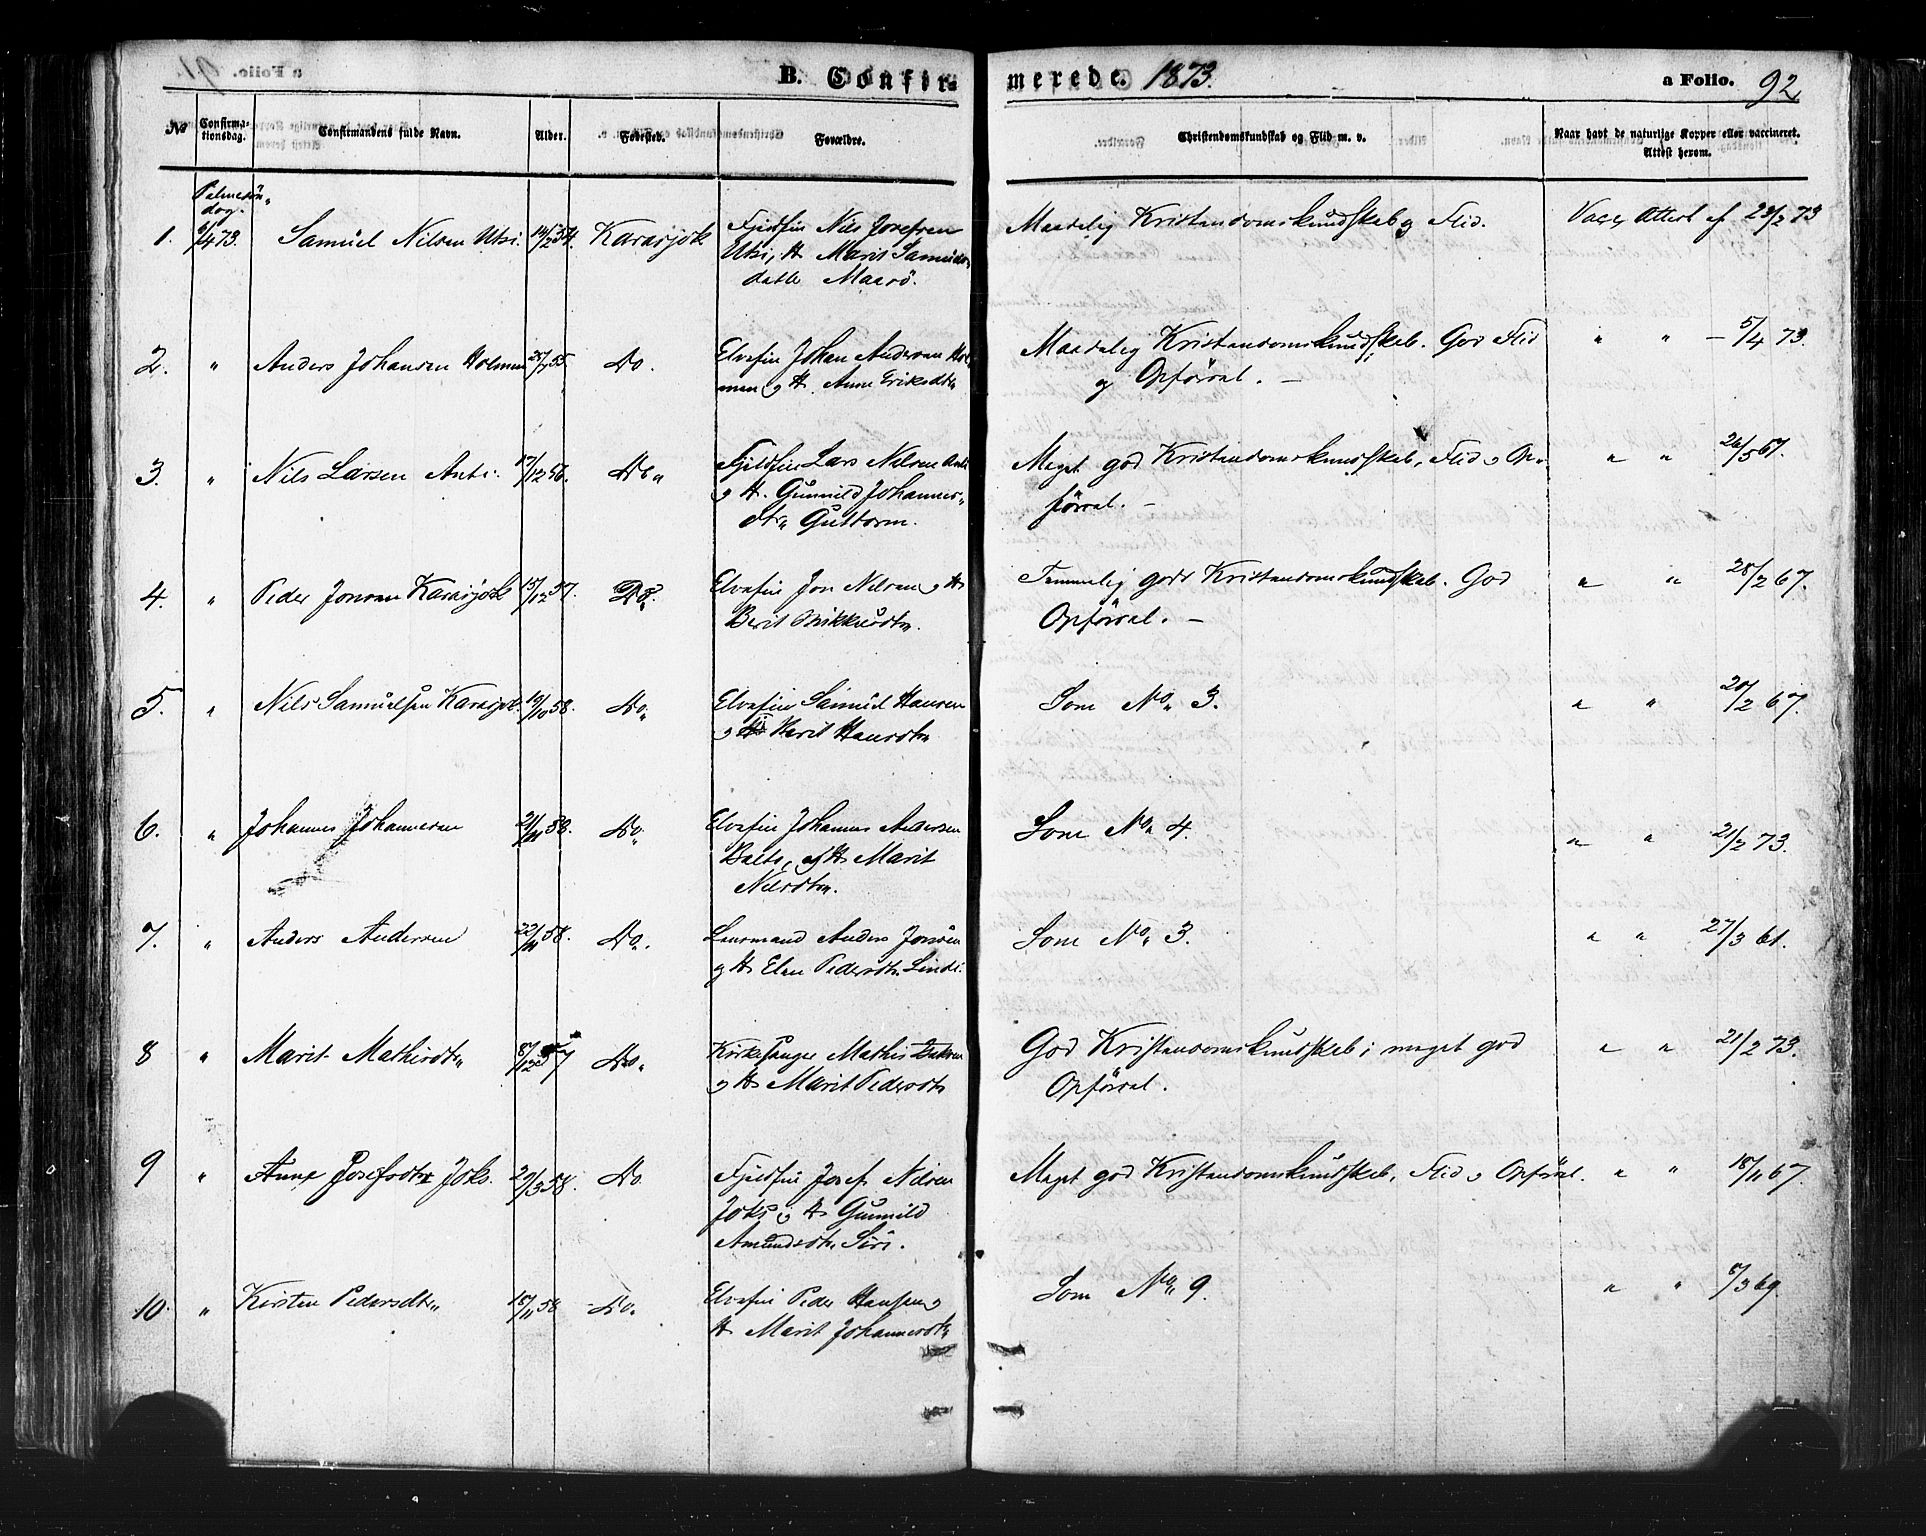 B. Confir- merede. 1873. a Folio. 92
No Confirma- Confirmandens fulde Navn. Alder. Fødested. Forældre. Christendomskundskab og Flid m. v. Naar havt de naturlige Kopper eller vaccineret.
tionsdag. Attest herom.
Palmesön-
dag.
1. 6/4 73. Samuel Nilsen Utsi. 14/2 54. Karasjok Fjeldfin Nils Josefsen Maadelig Kristendomskundskab og Flid. Vacc. Attest af 23/2 73
Utsi, H. Marit Samuels-
datter
2. " Anders Johansen Holmen 55. Do. Elvefin Johan Andersen Hol- Maadelig Kristendomskundskab. God Flid " " — 5/4 73.
men og H. Anne Eriksdtr og Opförsel. —
3. " Nils Larsen Anti. 17/12 56. Do. Fjeldfin Lars Nilsen Anti Meget god Kristendomskundskab, Flid og Op- " " 26/5 67.
og H. Gunnild Johannes- försel. —
dtr. Guttorm.
4. " Peder Jonsen Karasjok 15/12 57. Do. Elvefin Jon Nilsen og H. Temmelig gode Kristendomskundskab. God " " 28/2 67.
Berit Mikkelsdtr. Opförsel. —
5. " Nils Samuelsen Karasjok. 19/10 58. Do. Elvefin Samuel Hansen Som No. 3. " " 28/2 67.
og H. Marit Hansdtr
6. " Johannes Johannesen 21/11 58. Do. Elvefin Johannes Andersen Som No. 4. " " 21/2 73.
Balto, og H. Marit
Nilsdtr.
7. " Anders Andersen 22/11 58. Do. Lensmand Anders Jonsen Som No. 3. " " 27/3 61.
og H. Elen Pedersdtr. Lindi.
8 " Marit Mathisdtr. 8/12 57 Do. Kirkesanger Mathis Isaksen God Kristendomskundskab; meget god " " 21/2 73.
og H. Marit Pedersdtr Opförsel.
9 " Anne Josefsdtr Joks. 29/3 58. Do. Fjeldfin Josef Nilsen Meget god Kristendomskundskab, Flid og Opförsel. " " 18/11 67.
Joks og H. Gunnild
Amundsdtr. Siri.
10. " Kirsten Pedersdtr. 18/11 58 Do. Elvefin Peder Hansen og Som No. 9. " " 8/3 69.
H. Marit Johannesdtr